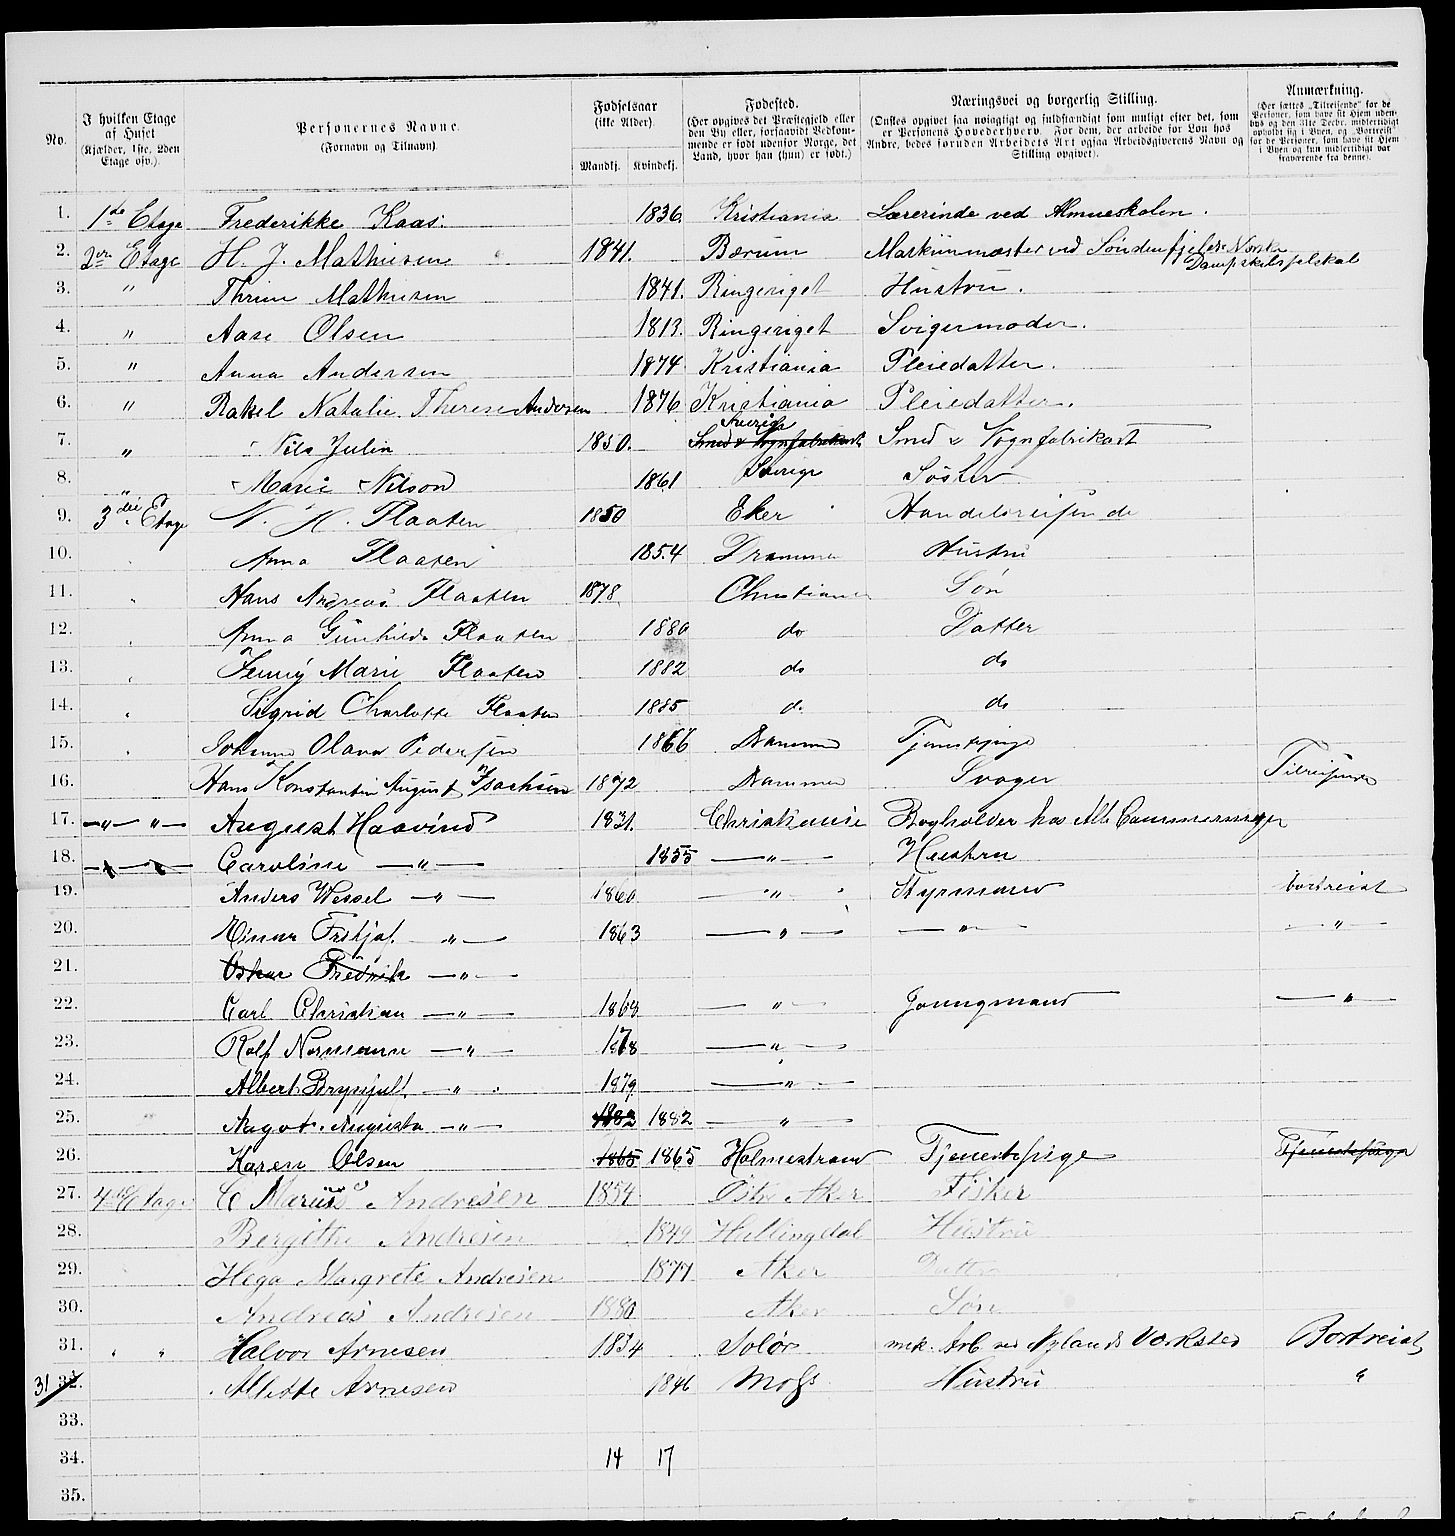 No. | I hvilken Etage af Huset (Kjælder, 1ste, 2den Etage osv.). | Personernes Navne. (Fornavn og Tilnavn) | Fødselsaar (ikke Alder). Mandkj. | Kvindekj. | Fødested. (Her opgives det Præstegjeld eller den By eller, forsaavidt Vedkommende er født udenfor Norge, det Land, hvor han (hun) er født.) | Næringsvei og borgerlig Stilling. (Ønskes opgivet saa nøiagtigt og fuldstændigt som muligt efter det, som er Personens Hovederhverv. For dem, der arbeide for Løn hos Andre, bedes foruden Arbeidets Art ogsaa Arbeidsgiverens Navn og Stilling opgivet). | Anmærkning. (Her sættes „Tilreisende" for de Personer, som have sit Hjem udenbys og den 31te Decbr. midlertidigt opholdt sig i Byen, og „Bortreist" for de Personer, som have sit Hjem i Byen og kun midlertidigt var fraværende fra denne).
1. 1ste Etage Frederikke Kaas. 1836. Kristiania Lærerinde ved Almueskolen.
2. 2den Etage H. J. Mathiesen 1841. Bærum Maskinmæster ved Søndenfjelske Norske Dampskibsselskab
3. " Thrine Mathiesen 1841. Ringeriget Hustru.
4. " Aase Olsen 1813. Ringeriget Svigermoder.
5. " Anna Andersen 1874. Kristiania Pleiedatter.
6. " Rakel Natalie Therese Andersen 1876 Kristiania Pleiedatter.
7. " Nils Julin 1850. Sverige Smed & Vognfabrikant Smed & Vognfabrikant
8. " Marie Nilson 1861 Sverige Søster
9. 3die Etage N. H. Flaaten 1850 Eker Handelsreisende
10. Anna Flaaten 1854 Drammen Hustru
11. Hans Andreas Flaaten 1878 Christiania Søn
12. Anna Gunhilda Flaaten 1880 do Datter
13. Jenny Marie Flaaten 1882 do do
14. Sigrid Charlotte Flaaten 1885 d. do
15. Johanne Olava Pedersen 1866 Drammen Tjenestepige
16. Hans Konstantin August Isachsen 1872 Drammen Svoger Tilreisende
17. —"— "— August Haavind 1831. Christiania Bogholder hos
18. Caroline —"— 1855 —"— Hustru
19. Anders Wessel —"— 1860 —"— Styrmand bortreist
20. Einar Fritjof —"— 1863 —"— —"— —"—
21. Oskar Fredrik —"—
22. Carl Christian —"— 1868 —"— Joungmand —"—
23. Rolf Normann —"— 1878 —"—
24. Albert Brynjulf —"— 1879 —"—
25. Aagot Augusta —"— 1882 1882 —"—
26. Karen Olsen 1865 1865 Holmestrand Tjenestepige Tjenestepige
27. 4de Etage C Marius Andresen 1854 Østre Aker Fisker
28. Bergithe Andresen 1849 Hallingdal Hustru
29. Helga Margrete Andresen 1877 Aker Datter
30. Andreas Andresen 1880 Aker Søn
31. " " Halvor Arnesen 1834 Solør mek. Arb ved Nylands Værksted Bortreist
31 32. Alette Arnesen 1846 Moss Hustru "
33.
34. 14 17
35.